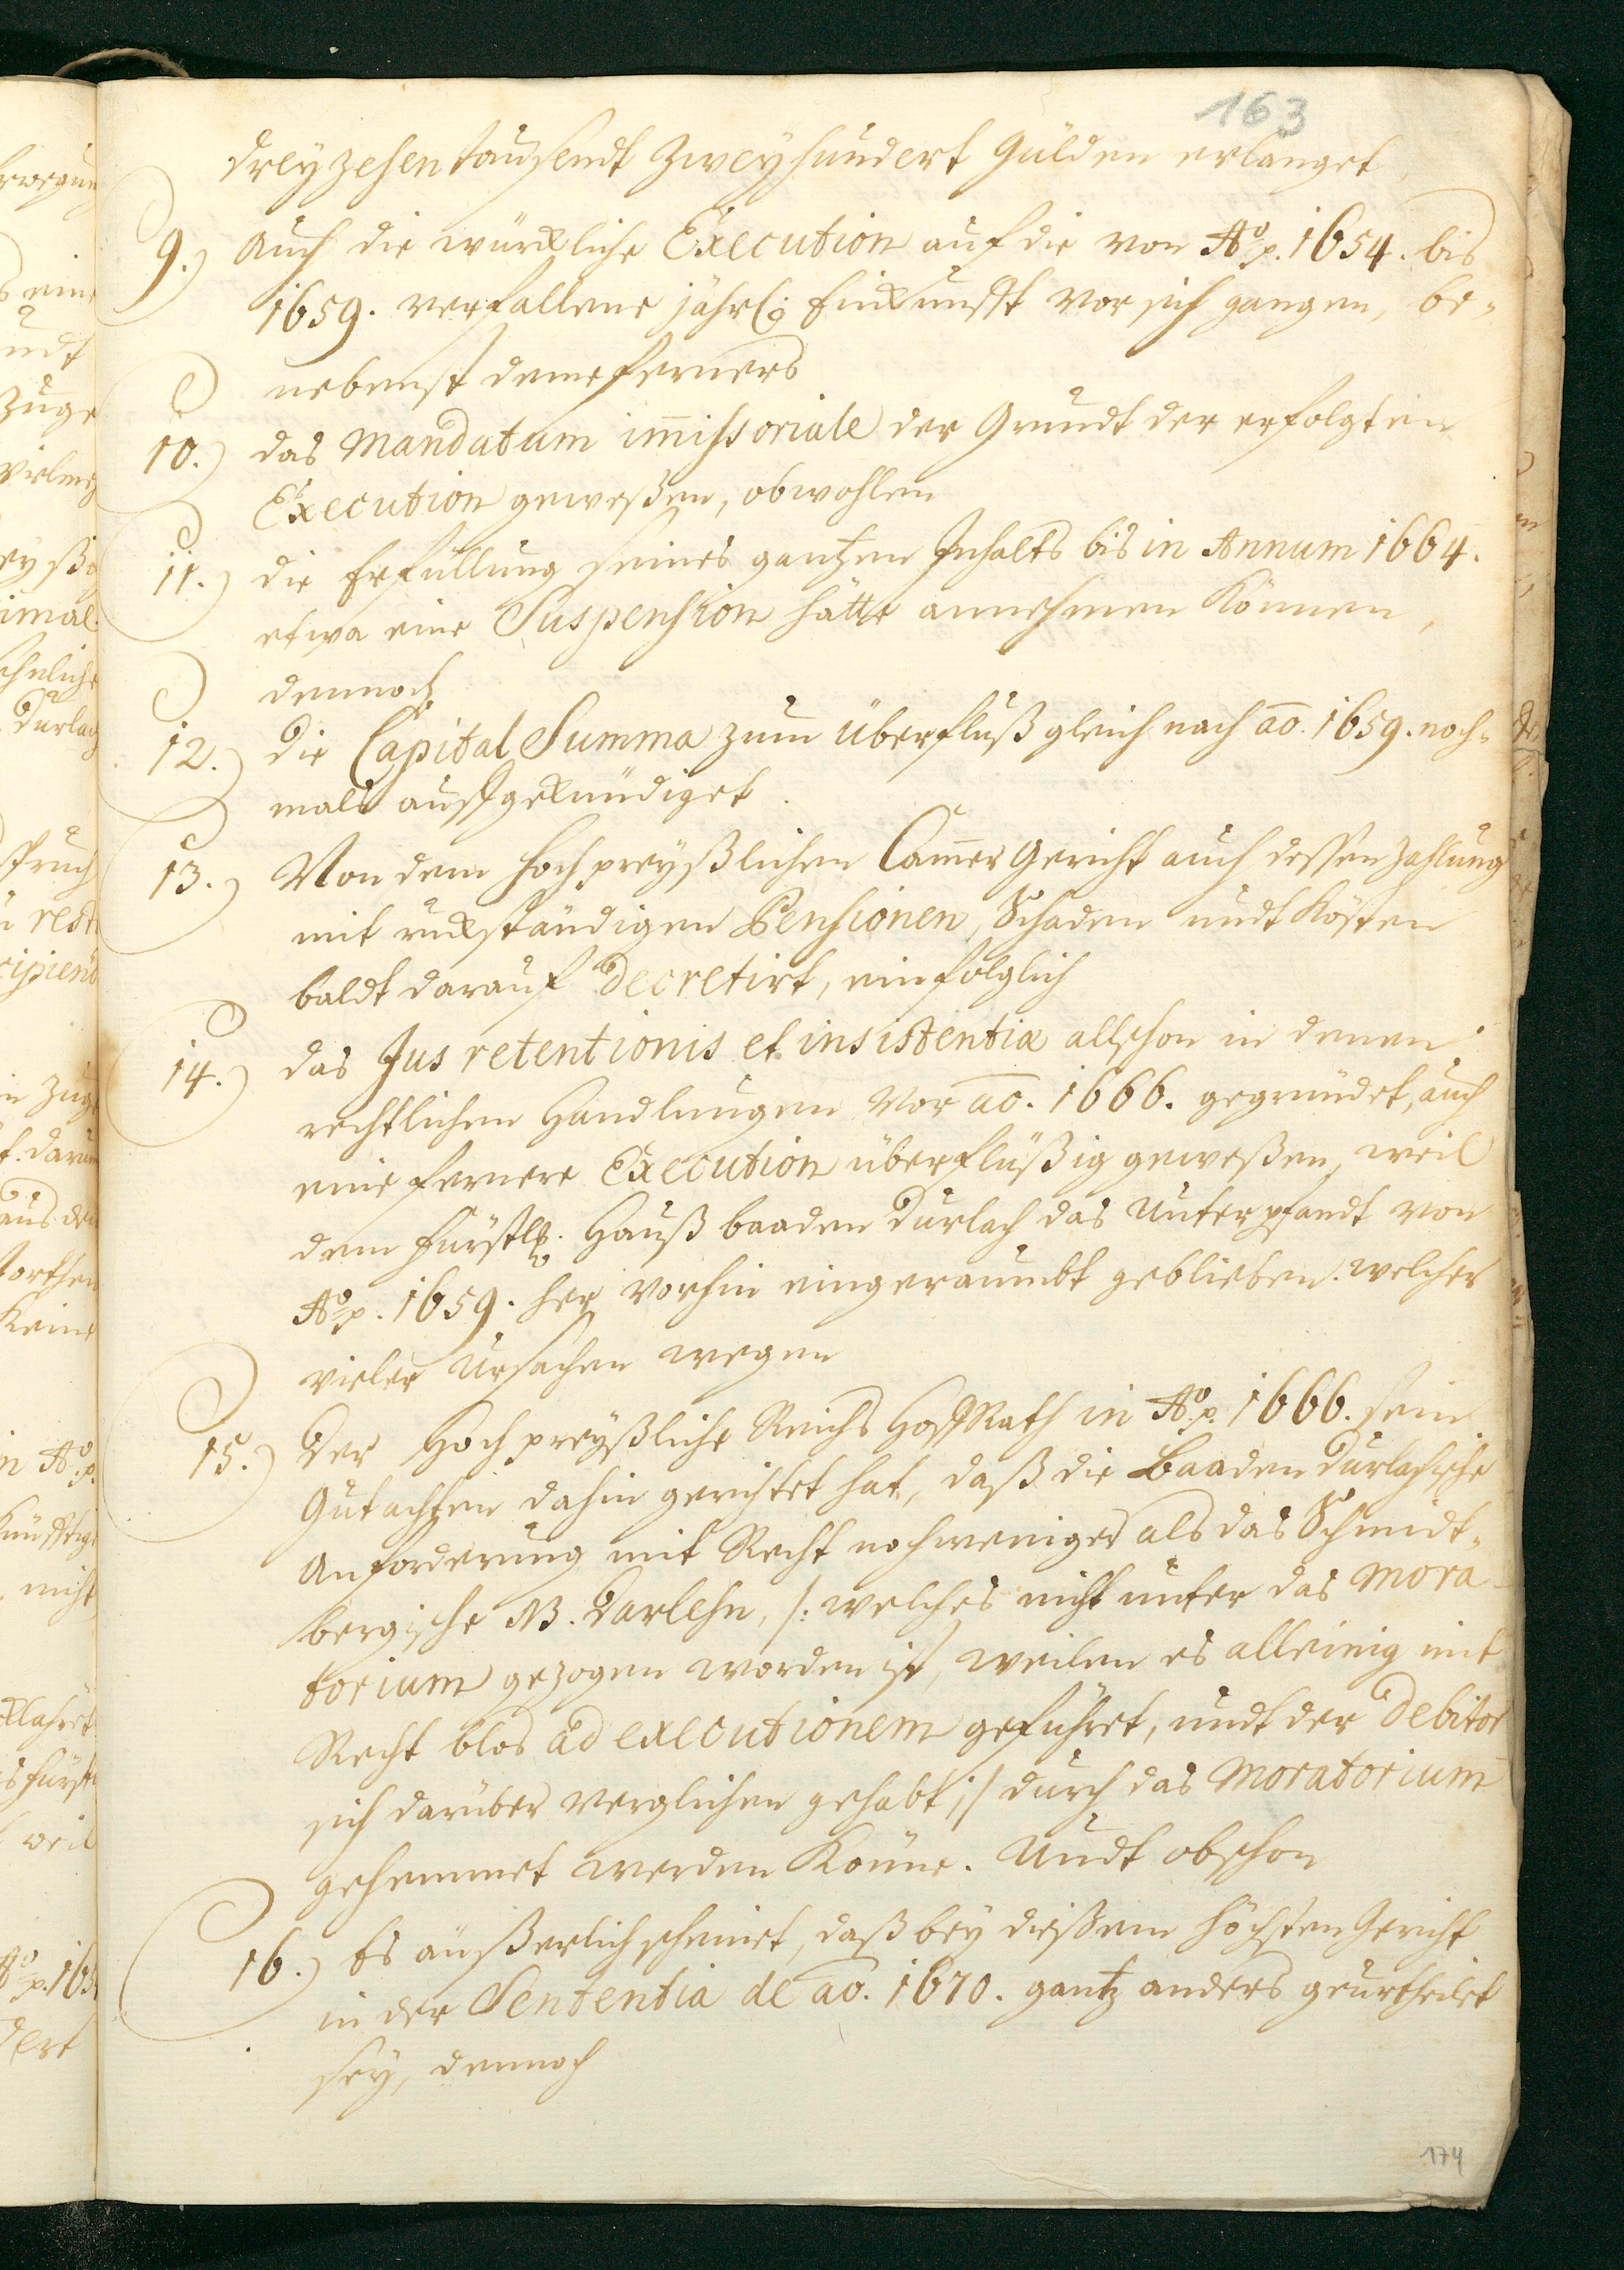 163
dreyzehentausendt Zweyhundert Gülden erlanget,
9.) Auch die würckliche Execution auf die von Aº p. 1654. bis
1659. verfallene jährl: Einkunfft vor sich gangen, be-
nebenst deme ferners
10.) das Mandatum im̅issoriale der Grundt der erfolgten
Execution geweßen, obwohlen
11.) die Erfüllung seines gantzen Inhalts bis in Annum 1664.
etwa eine Suspension hätte annehmen können,
dennoch
12.) die Capital Summa zum Überfluß gleich nach ao. 1659. noch-
mals auffgekündiget.
13.) Von dem hochpreyßlichen Cam̅er Gericht auch dessen Zahlung
mit ruckständigen Pensionen, Schaden undt Kösten
baldt darauf decretirt, einfolglich
14.) das Jus retentionis et insistentiæ allschon in denen
rechtlichen Handlungen vor ao. 1666. gegründet, auch
eine fernere Execution überflüßig geweßen, weil
dem Fürstl. Hauß baaden Durlach das Unterpfandt von
Aº p. 1659. her vorhin eingeraumbt geblieben. welcher
vieler Ursachen wegen
15.) Der Hochpreyßliche Reichs HoffRath in Aº p. 1666. sein
Gutachten dahin gerichtet hat, daß die Baaden Durlachische
Anforderung mit Recht noch weniger als das Schmidt-
bergische NB. Darlehn, /: welches nicht unter das Mora-
torium gezogen worden ist, weilen es alleinig mit
Recht blos ad executionem geführet, undt der Debitor
sich darüber verglichen gehabt :/ durch das Moratorium
gehemmet werden könne. Undt obschon
16.) Es äußerlich scheinet, daß bey dießem höchsten Gericht
in der Sententia de ao. 1670. gantz anders geurtheilet
sey, dennoch
174